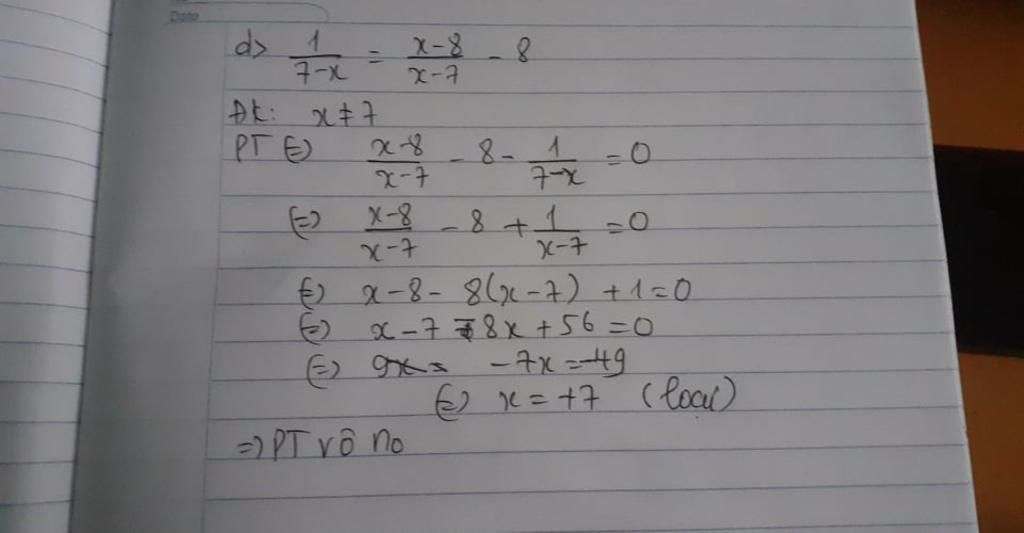 Date
d> 1/(7-x) = (x-8)/(x-7) - 8
ĐK: x ≠ 7
PT ⇔ (x-8)/(x-7) - 8 - 1/(7-x) = 0
⇔ (x-8)/(x-7) - 8 + 1/(x-7) = 0
⇔ x - 8 - 8(x-7) + 1 = 0
⇔ x - 7 - 8x + 56 = 0
⇔ -7x = -49
⇔ x = +7 (loại)
⇒ PT vô no